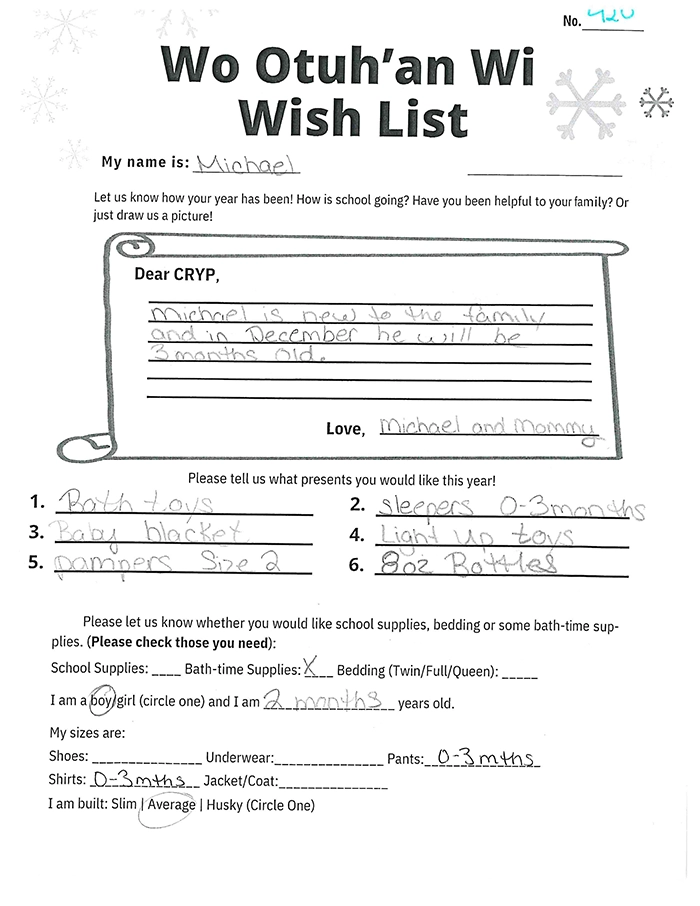 No. 420
Wo Otuh’an Wi
Wish List
My name is: Michael
Let us know how your year has been! How is school going? Have you been helpful to your family? Or
just draw us a picture!
Dear CRYP,
Michael is new to the family
and in December he will be
3 months old.
Love, Michael and Mommy
Please tell us what presents you would like this year!
1. Bath toys 2. Sleepers 0-3 months
3. Baby blacket 4. Light up toys
5. pampers Size 2 6. 8oz Bottles
Please let us know whether you would like school supplies, bedding or some bath-time sup-
plies. (Please check those you need):
School Supplies: ____ Bath-time Supplies: X Bedding (Twin/Full/Queen): _____
I am a boy/girl (circle one) and I am 2 months years old.
My sizes are:
Shoes: _______________ Underwear: _______________ Pants: 0-3 mths
Shirts: 0-3 mths Jacket/Coat: _______________
I am built: Slim | Average | Husky (Circle One)